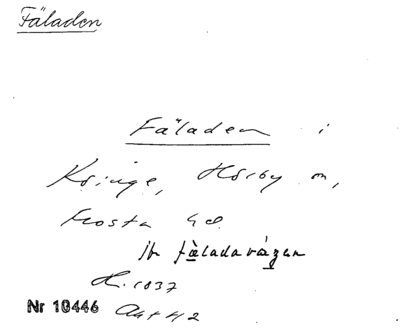 Fäladen
Fäladen i
Kringe, Hörby sn,
Frosta hd.
jfr fäladavägen
H. 1037
Nr 10446